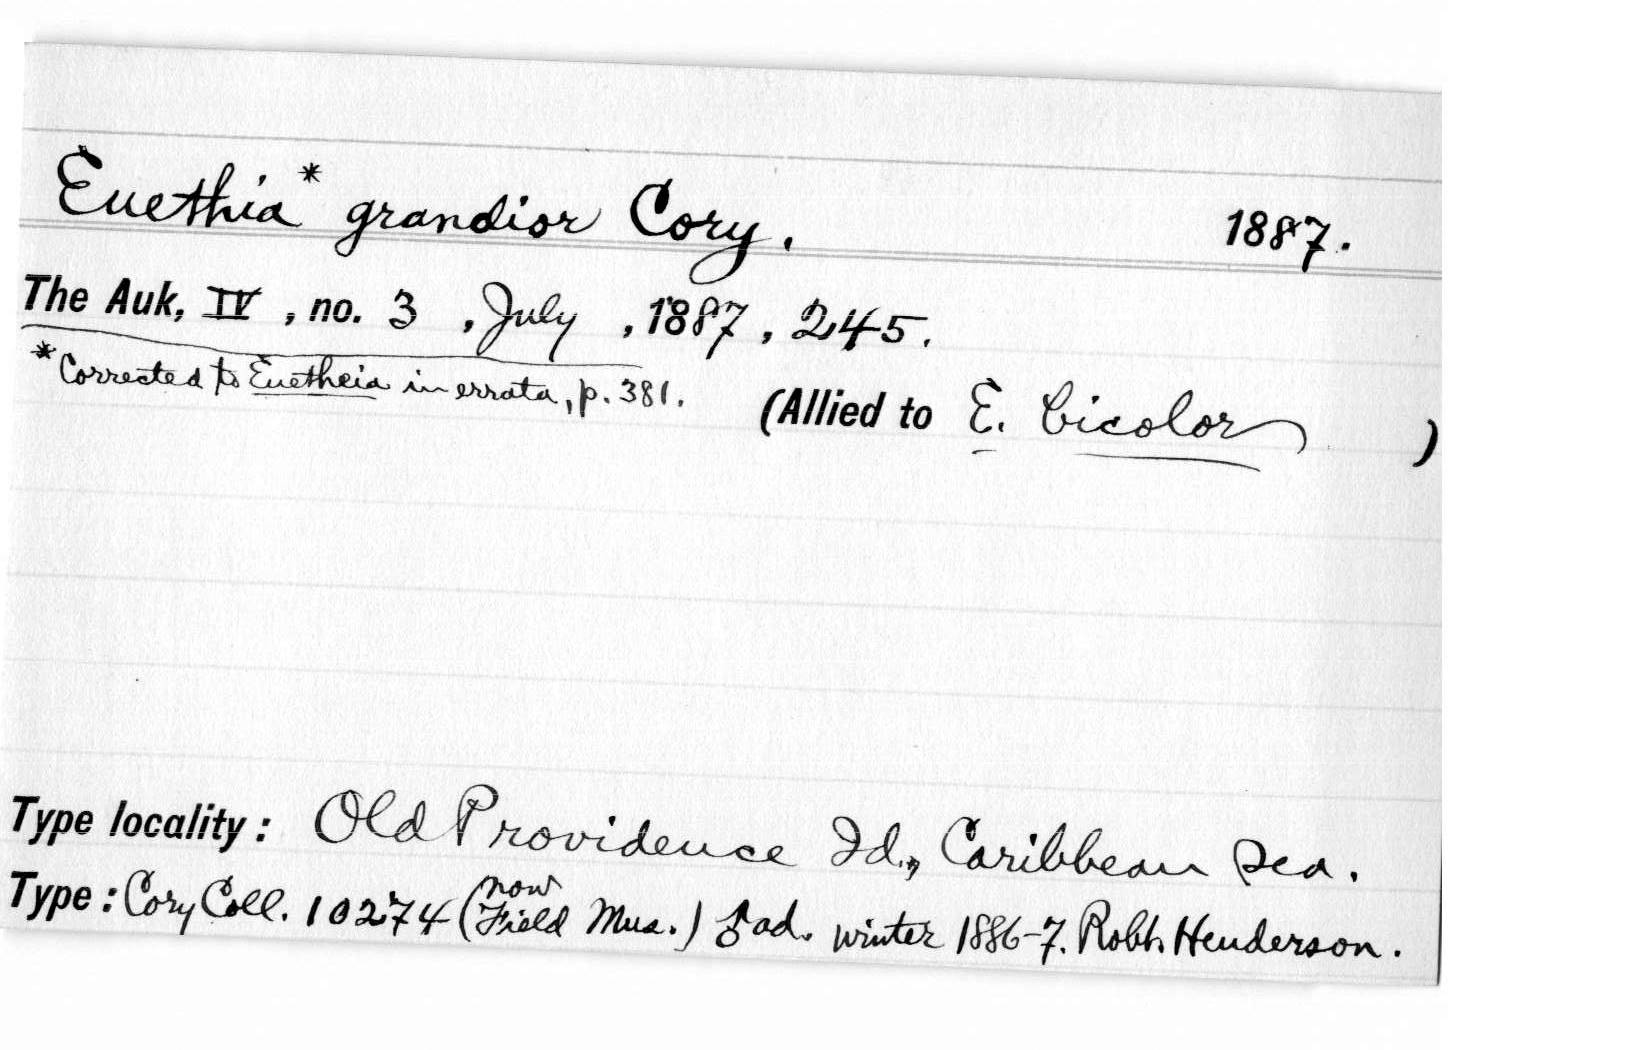 Euethia* grandior Cory. 1887.
The Auk, IV, no. 3, July, 1887, 245.
*Corrected to Euetheia in errata, p. 381.
(Allied to E. bicolor )
Type locality: Old Providence Id., Caribbean Sea.
Type: Cory Coll. 10274 (now Field Mus.) ♂ ad. winter 1886-7. Robt. Henderson.